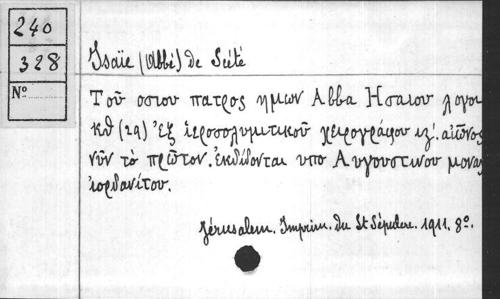 240
328
Nº
Isaïe (Abbé) de Scété
Τοῦ οσιου πατρος ημων Αββα Ησαιου λογοι
κθ (29) Ἐξ ἱεροσολυμιτικοῦ χειρογράφου ιγ΄. αἰῶνος
νῦν τὸ πρῶτον. Ἐκδίδονται υπο Αυγουστινου μοναχ
ιορδανίτου.
Jérusalem. Imprim. du St Sépulcre. 1911. 8º.